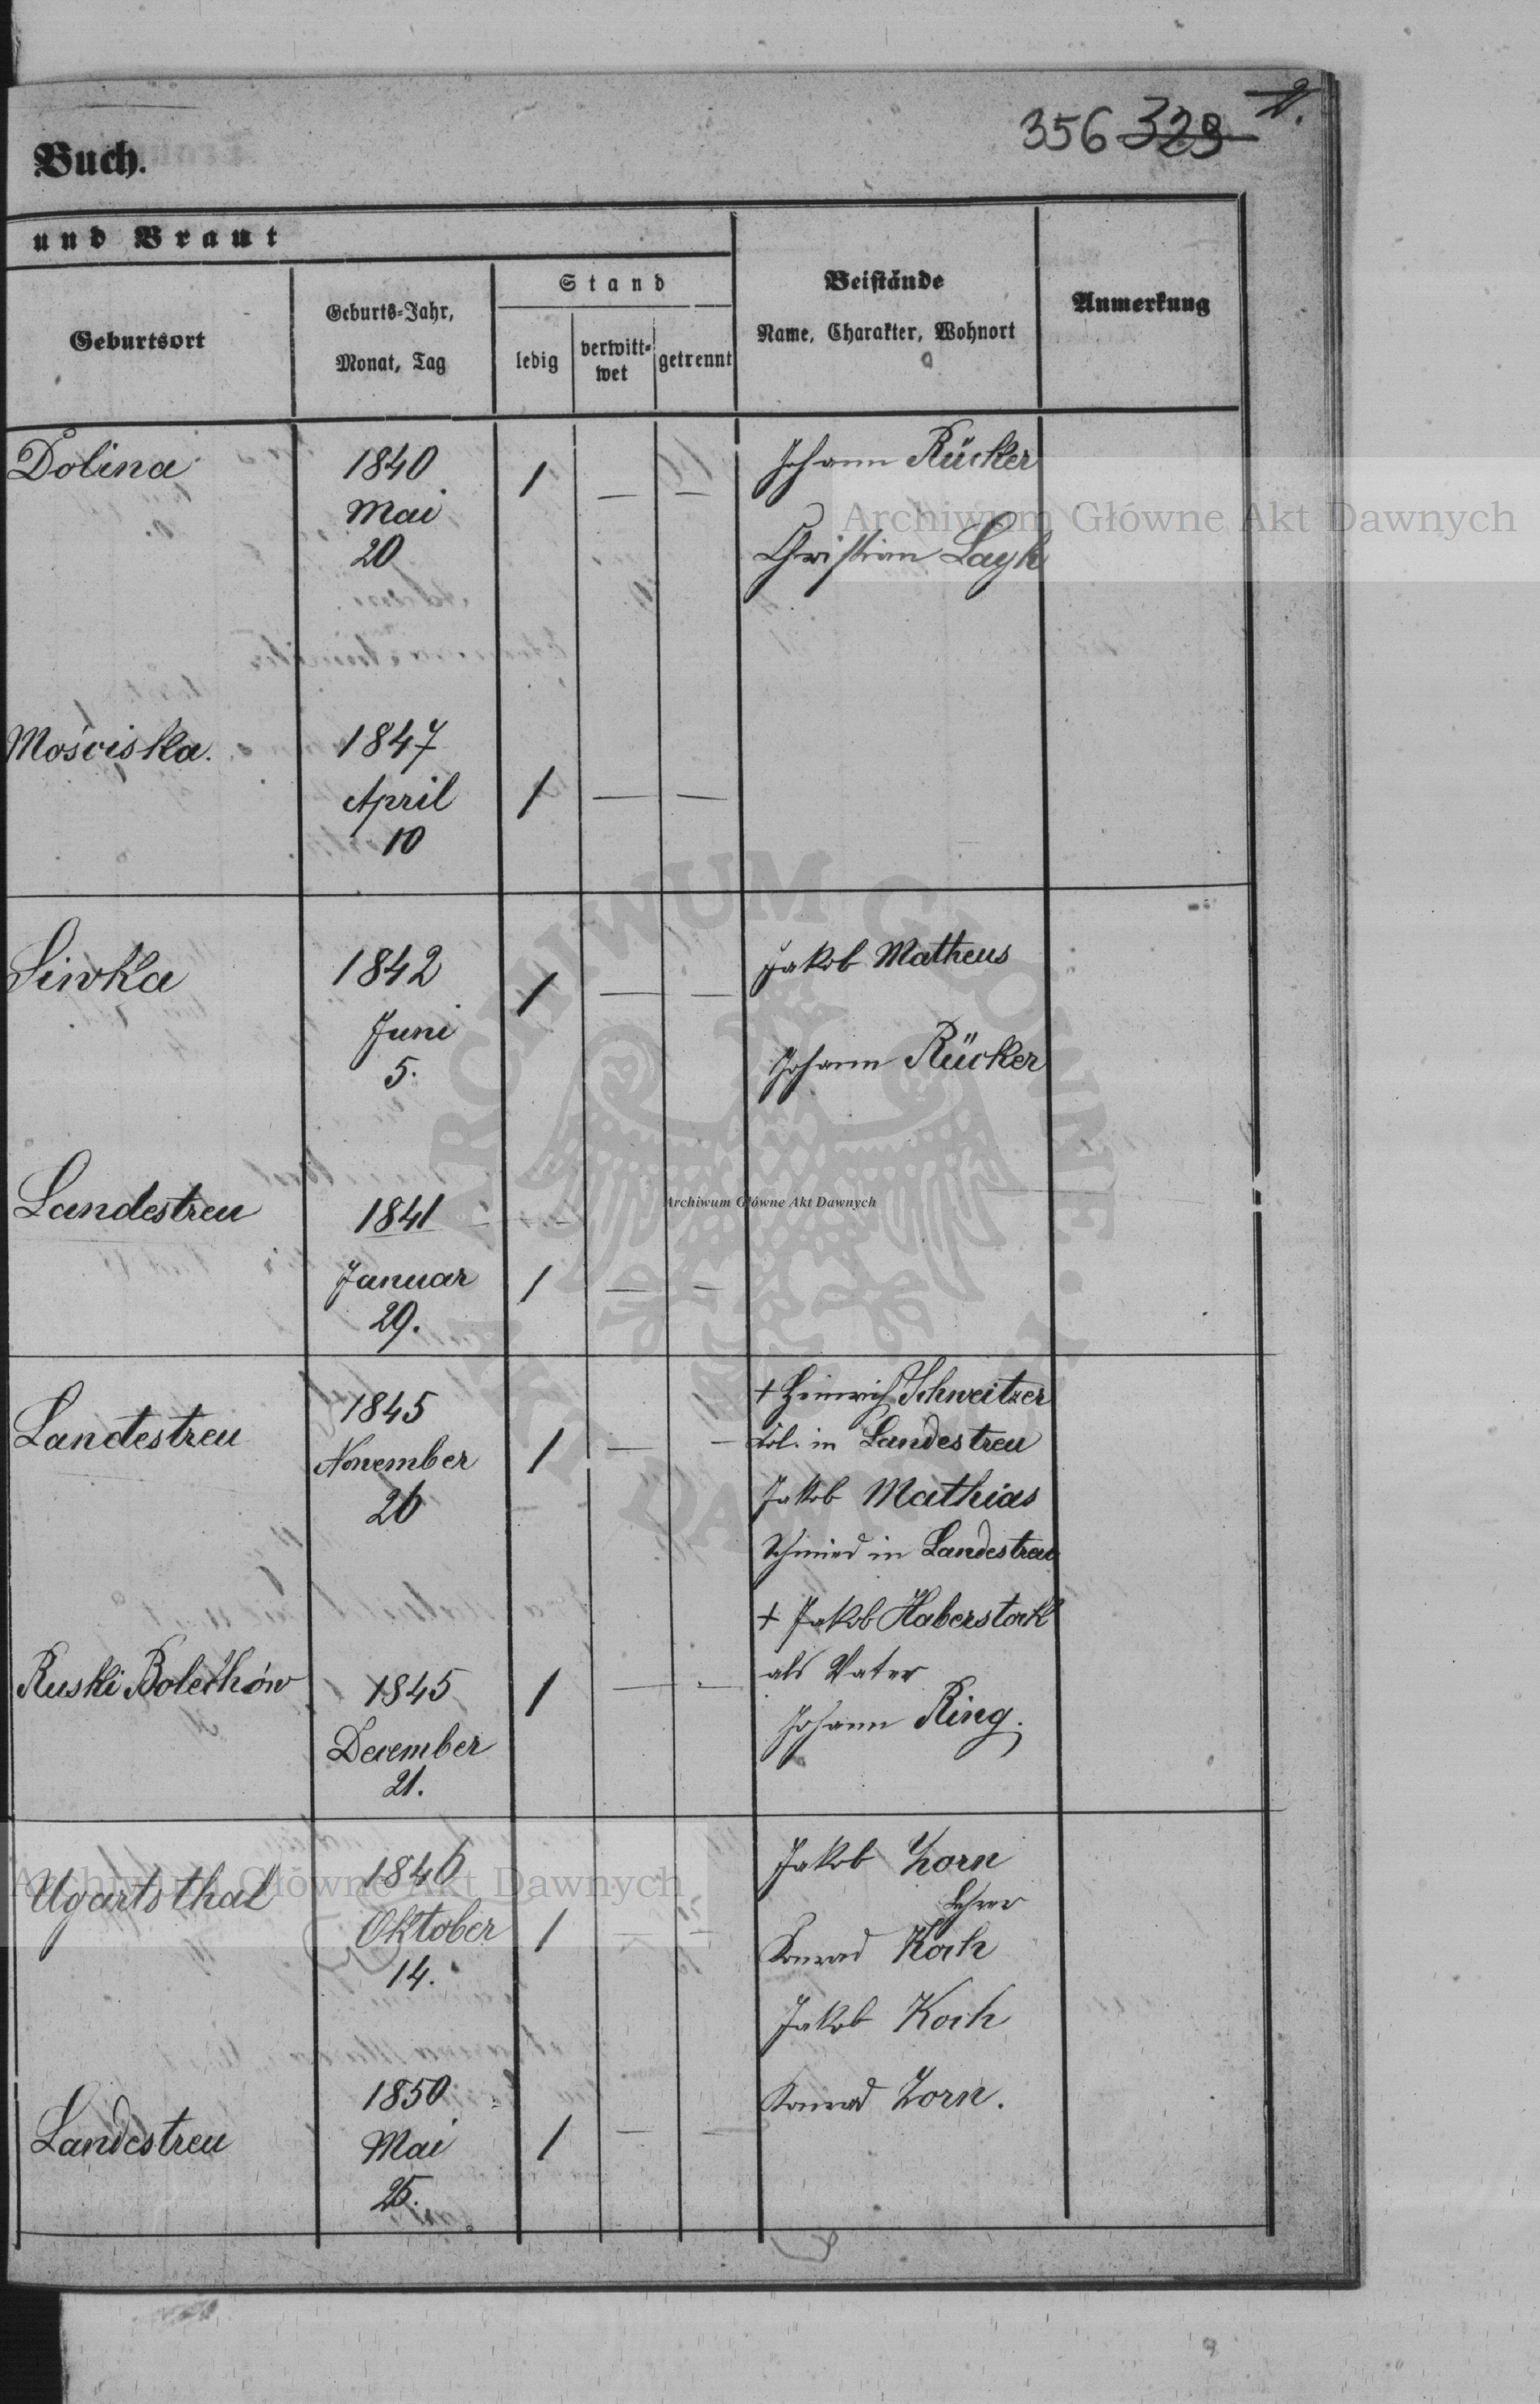 356 329 2.
Buch.
und Braut
Geburtsort
Geburts-Jahr,
Monat, Tag
Stand
ledig
verwitt-
wet
getrennt
Beistände
Name, Charakter, Wohnort
Anmerkung
Dolina
1840
Mai
20
1 — —
Johann Rücker
Christian Layh
Mościska.
1847
April
10
1 — —
Siwka
1842
Juni
5.
1 — —
Jakob Matheus
Johann Rücker
Landestreu
1841
Januar
29.
1 — —
Landestreu
1845
November
26
1 — —
+ Heinrich Schweitzer
Kol. in Landestreu
Jakob Mathias
Schmied in Landestreu
Ruski Bolechów
1845
December
21.
1 — —
+ Jakob Haberstock
als Vater
Johann Ring.
Ugartsthal
1846
Oktober
14.
1 — —
Jakob Zorn
Lehrer
Konrad Koch
Jakob Koch
Konrad Zorn.
Landestreu
1850
Mai
25.
1 — —
Archiwum Główne Akt Dawnych
ARCHIWUM GŁÓWNE AKT DAWNYCH
Archiwum Główne Akt Dawnych
Archiwum Główne Akt Dawnych